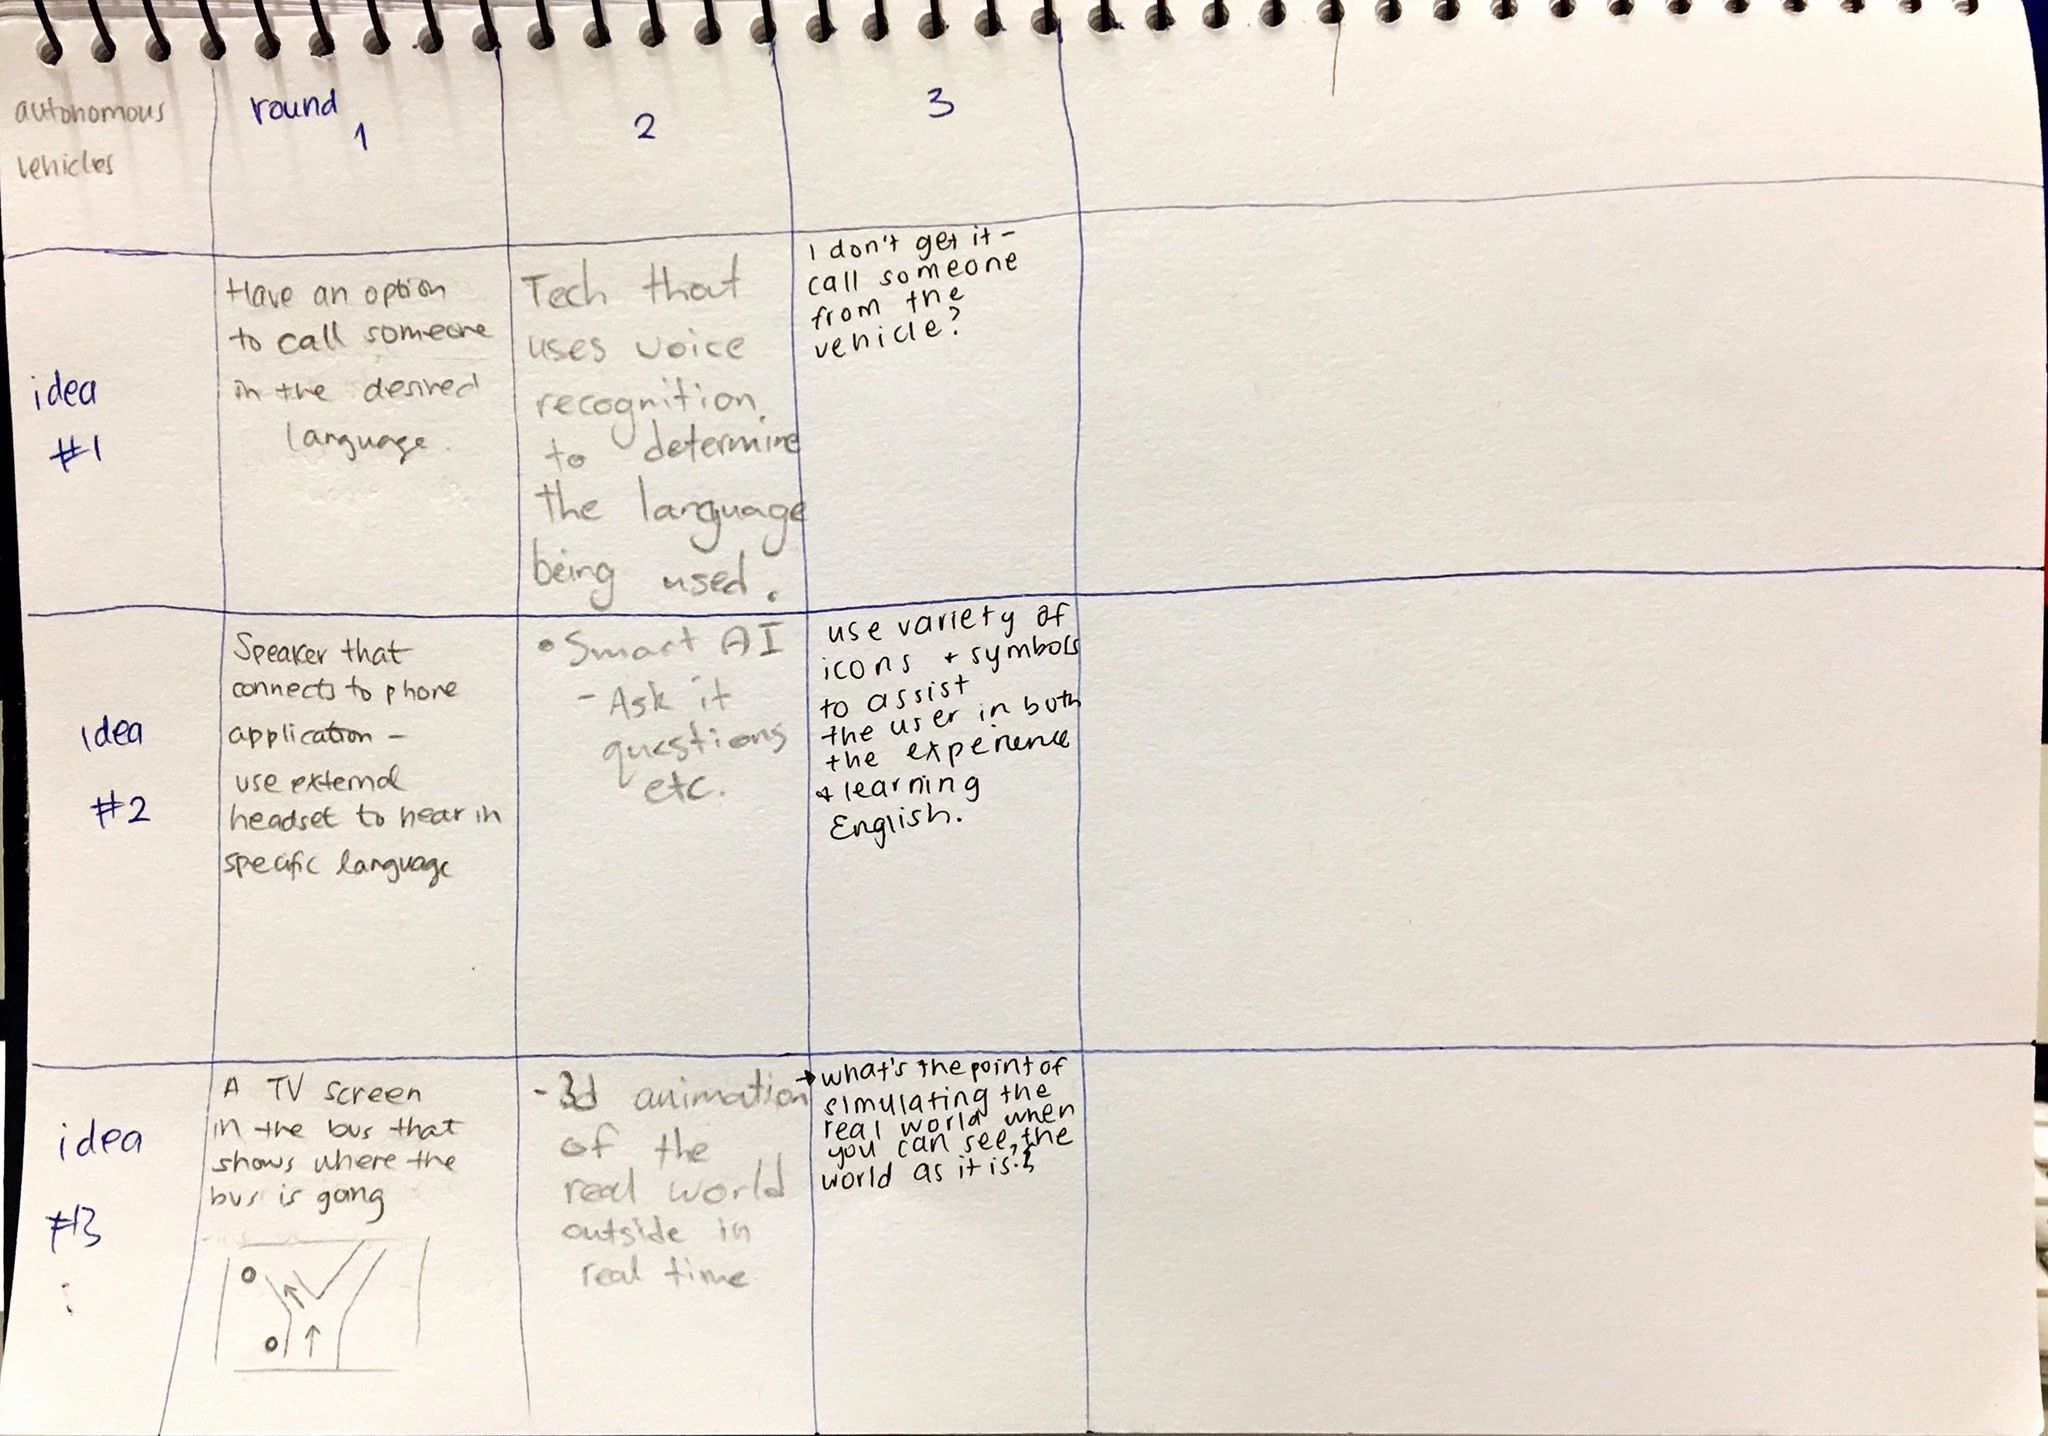 autonomous
vehicles
round
1
2
3
idea
#1
Have an option
to call someone
in the desired
language.
Tech that
uses voice
recognition
to determine
the language
being used.
I don't get it -
call someone
from the
vehicle?
idea
#2
Speaker that
connects to phone
application -
use external
headset to hear in
specific language
• Smart AI
- Ask it
questions
etc.
use variety of
icons + symbols
to assist
the user in both
the experience
+ learning
English.
idea
#3
A TV screen
in the bus that
shows where the
bus is going
- 3d animation
of the
real world
outside in
real time
→ what's the point of
simulating the
real world when
you can see, the
world as it is?